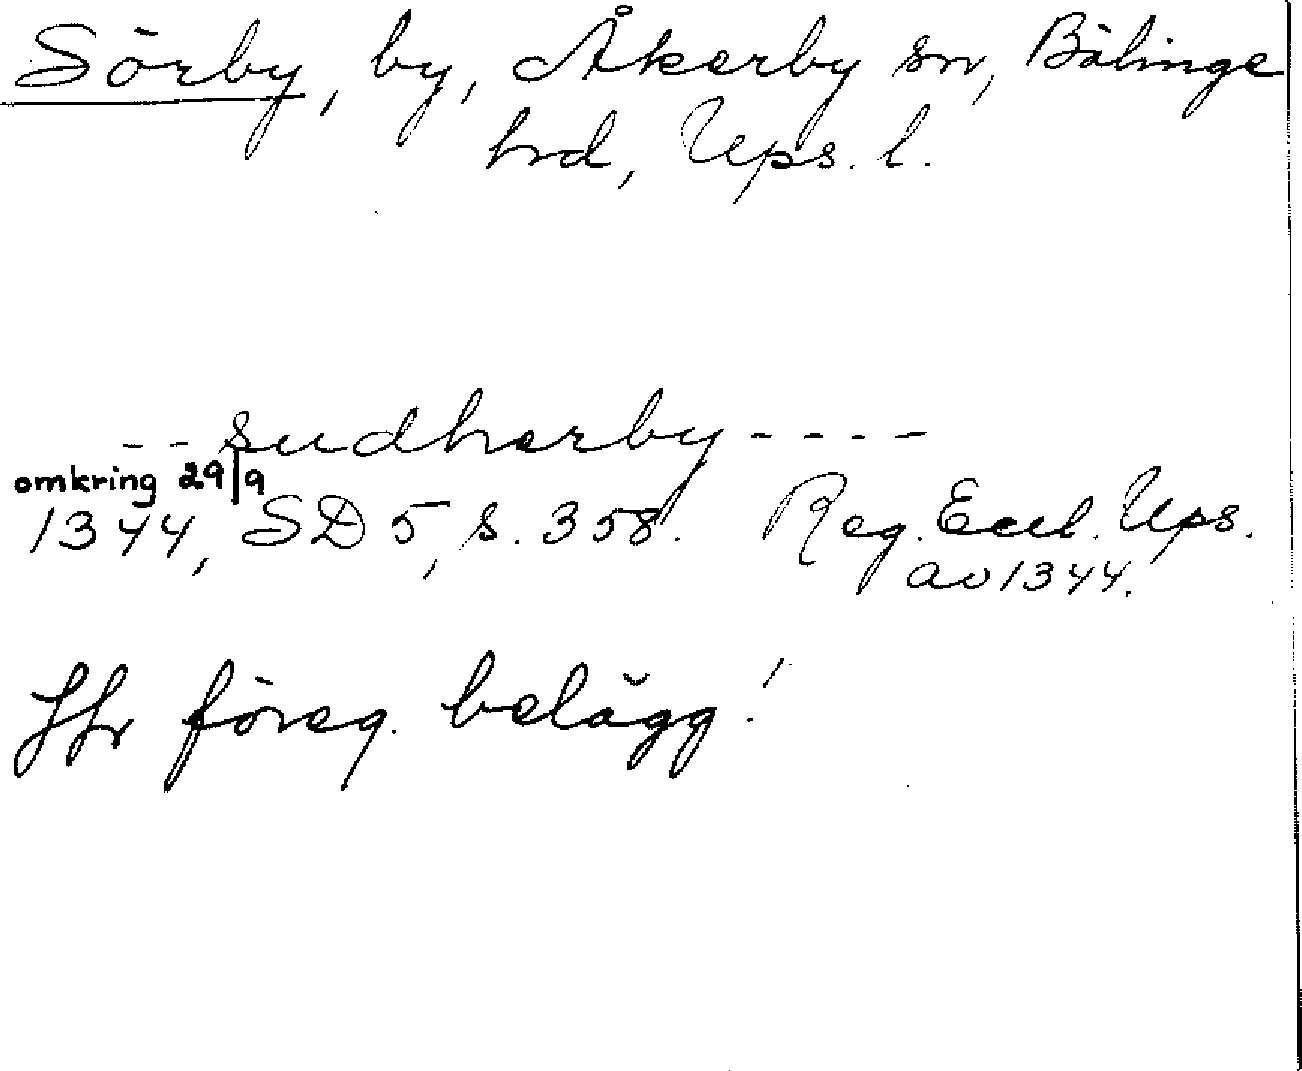 Sörby, by, Åkerby sn, Bälinge
hrd, Ups. l.
-- sudherby ----
omkring 29/9
1344, SD 5, s. 358. Reg. Eccl. Ups.
av 1344.
Jfr föreg. belägg!